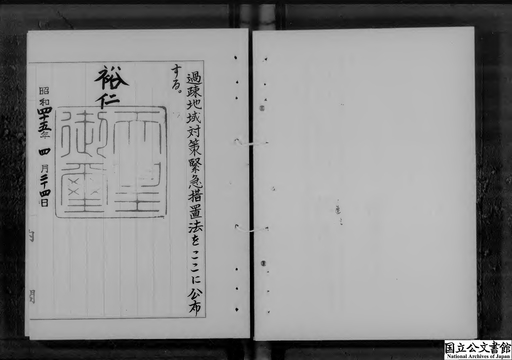 過疎地域対策緊急措置法をここに公布
する。
裕仁
天皇
御璽
昭和四十五年四月二十四日
国立公文書館
National Archives of Japan